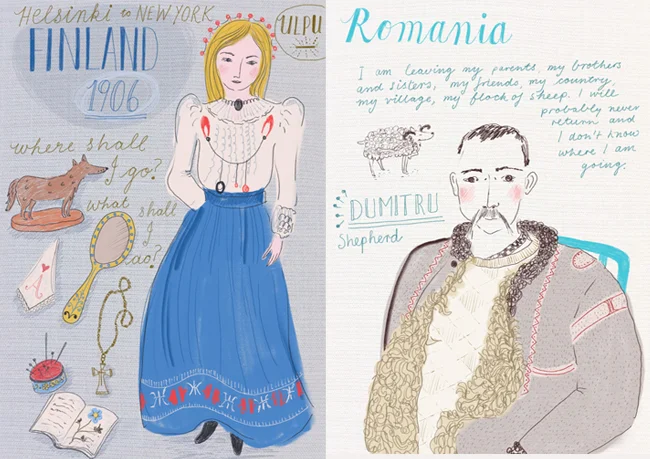 Helsinki to NEW YORK
FINLAND
1906
ULPU
where shall
I go?
What shall
I
do?
A
Romania
I am leaving my parents, my brothers
and sisters, my friends, my country,
my village, my flock of sheep. I will
probably never
return and
I don't know
where I am
going.
DUMITRU
Shepherd